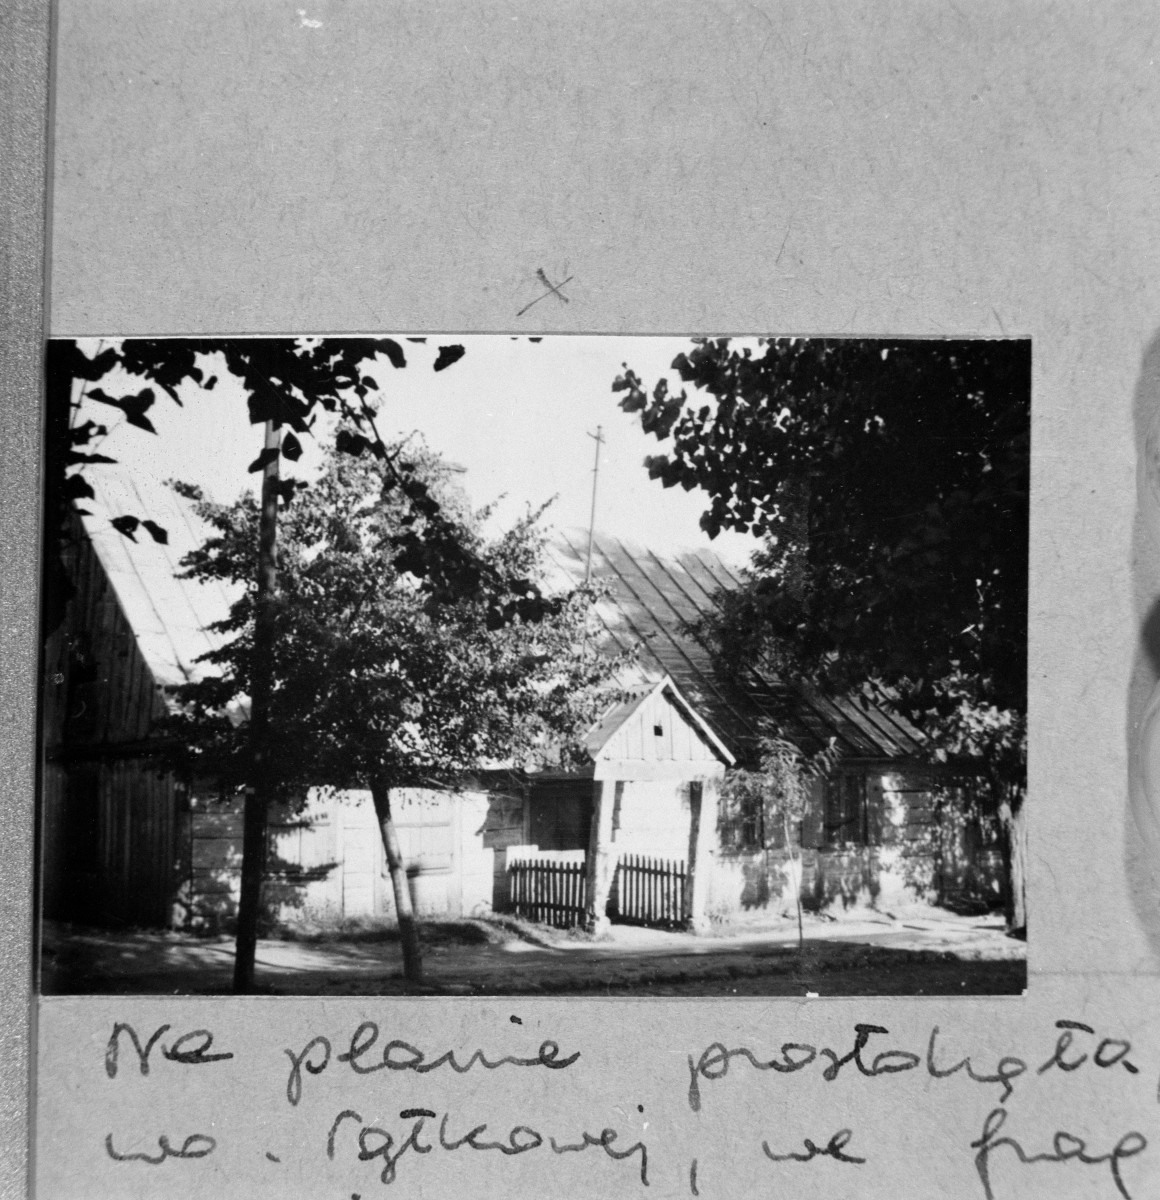 Na planie prostokąta,
wo. rątkowej, we frag